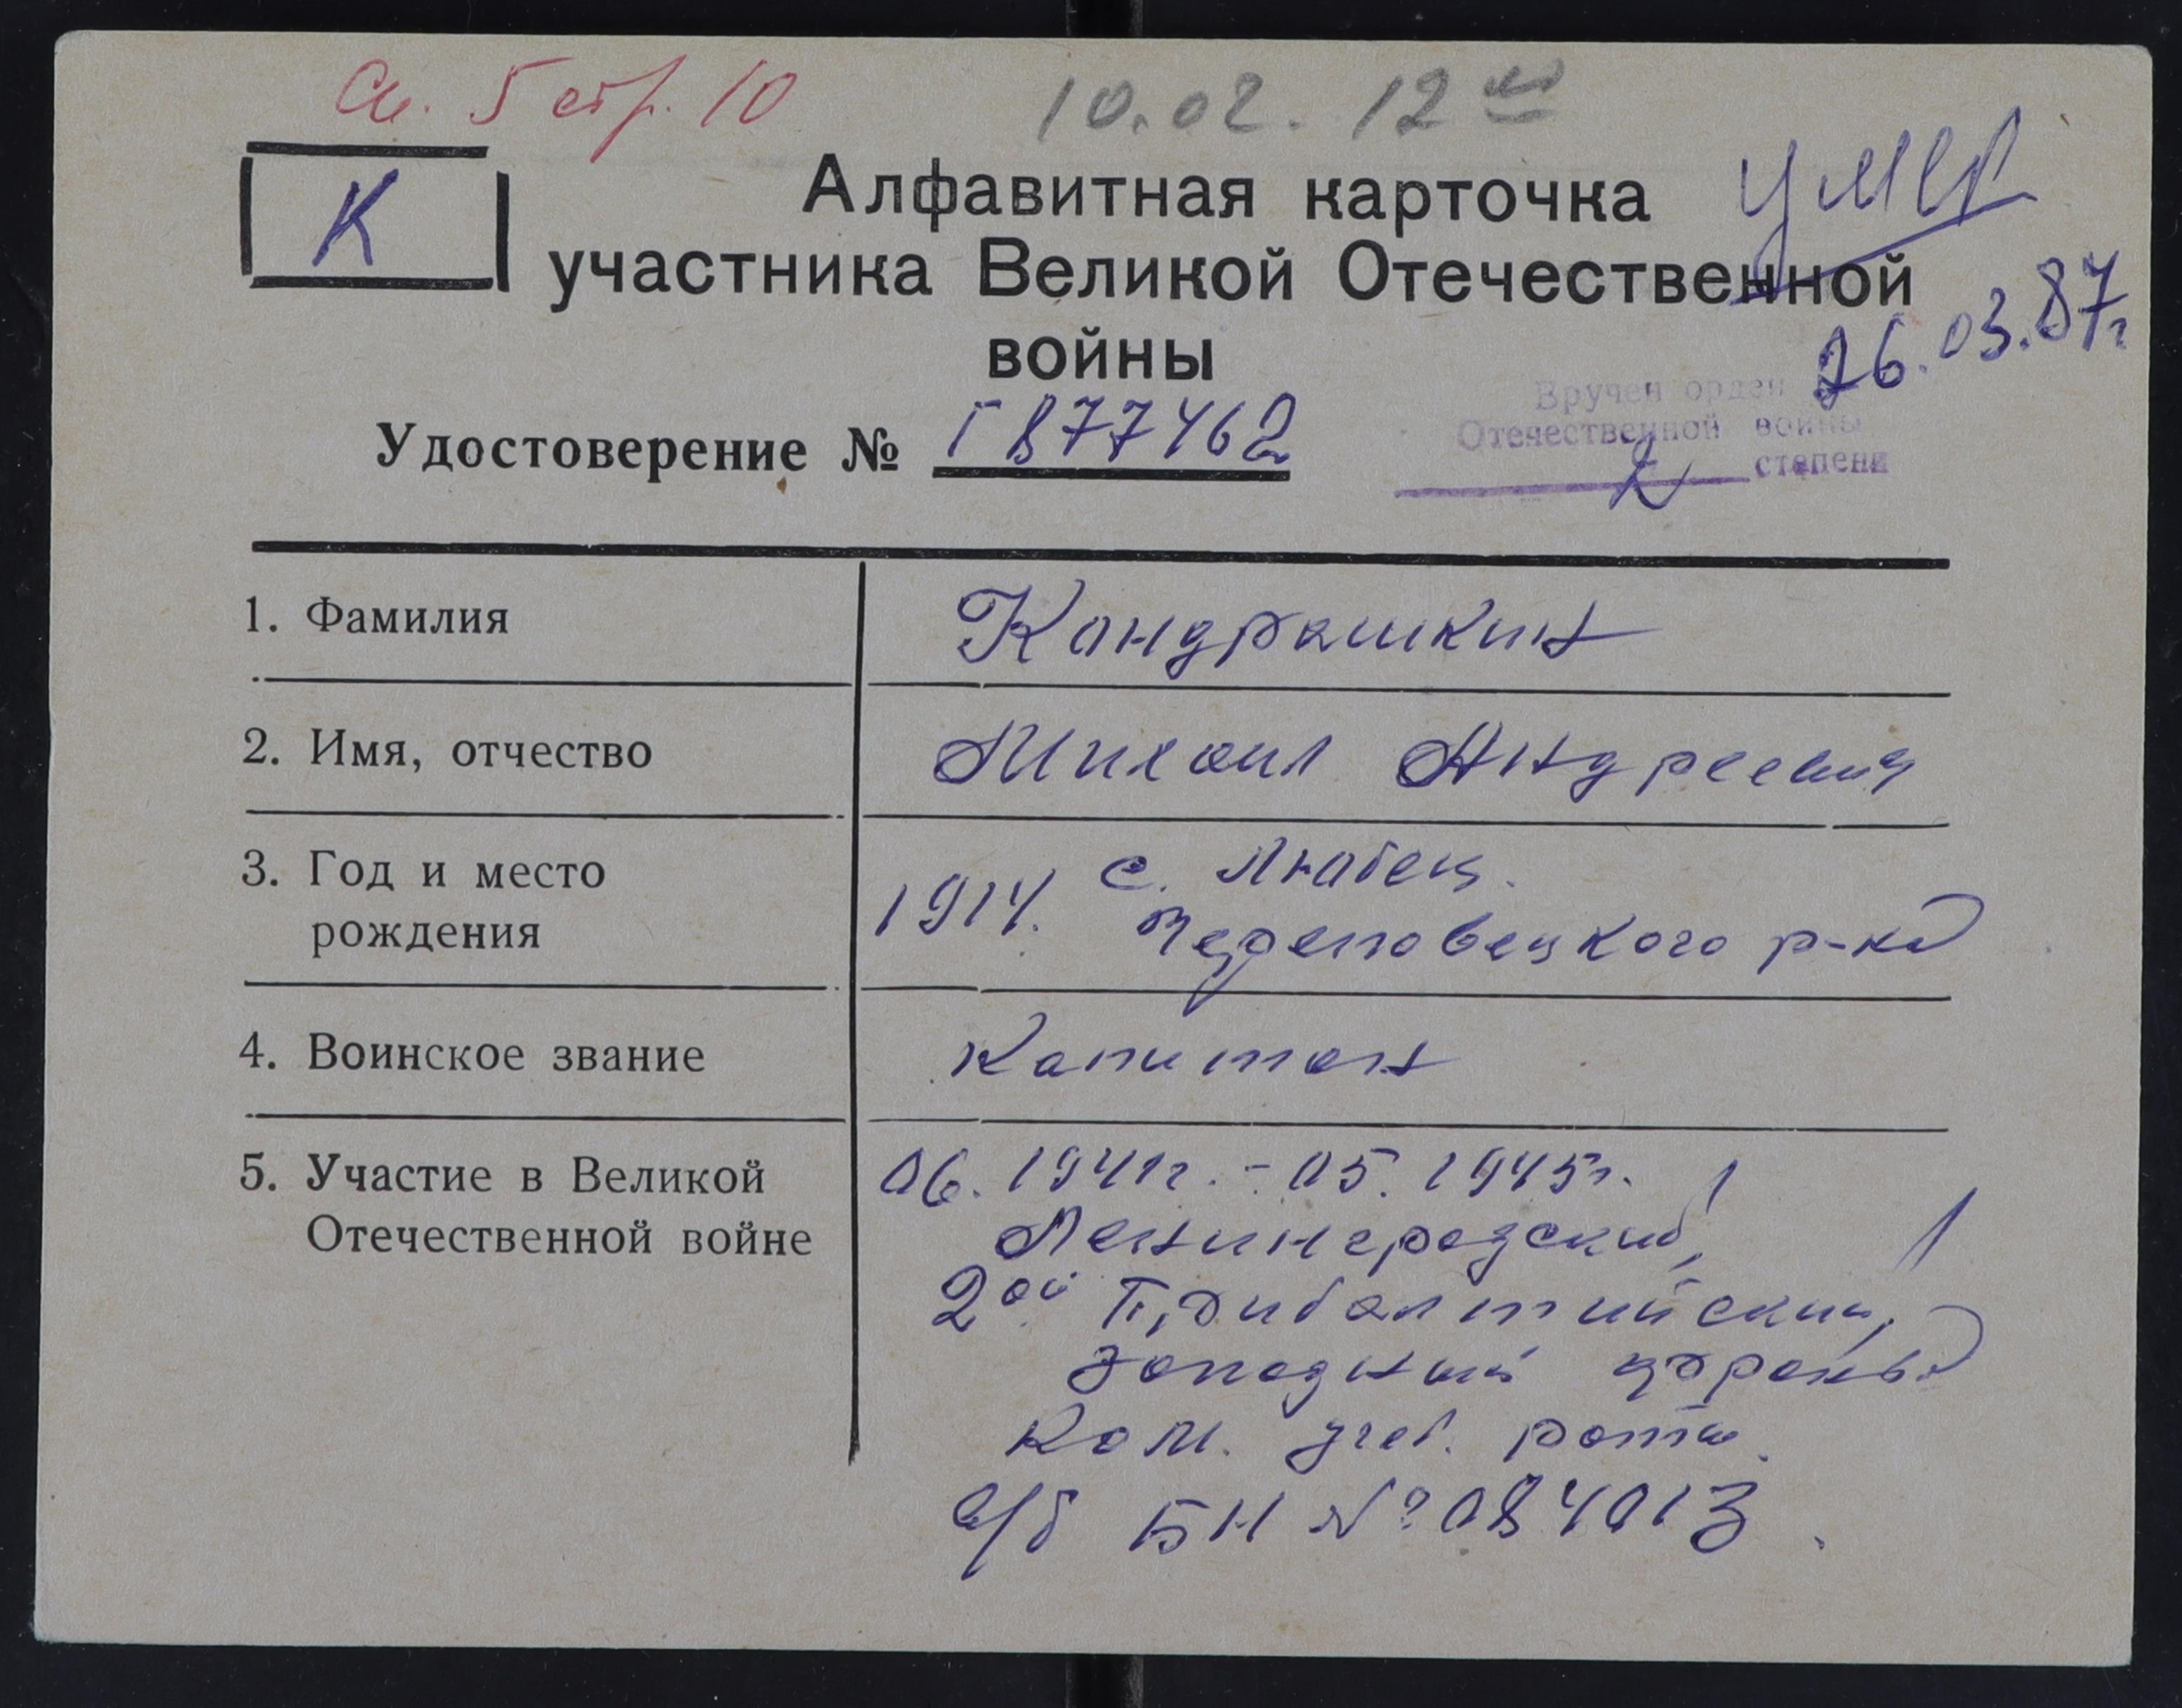 Сп. 5 стр. 10
10.02. 12
К
Алфавитная карточка
умер
участника Великой Отечественной
войны
26.03.87г
Вручен орден
Отечественной войны
2 степени
Удостоверение № Г 877462
1. Фамилия
Кондрашкин
2. Имя, отчество
Михаил Андреевич
3. Год и место
рождения
1914. с. Любец.
Череповецкого р-на
4. Воинское звание
капитан
5. Участие в Великой
Отечественной войне
06. 1941г. - 05. 1945г.
Ленинградский,
2ой Прибалтийский,
Западный фронты
Ком. учеб. роты
в/б БН №084013